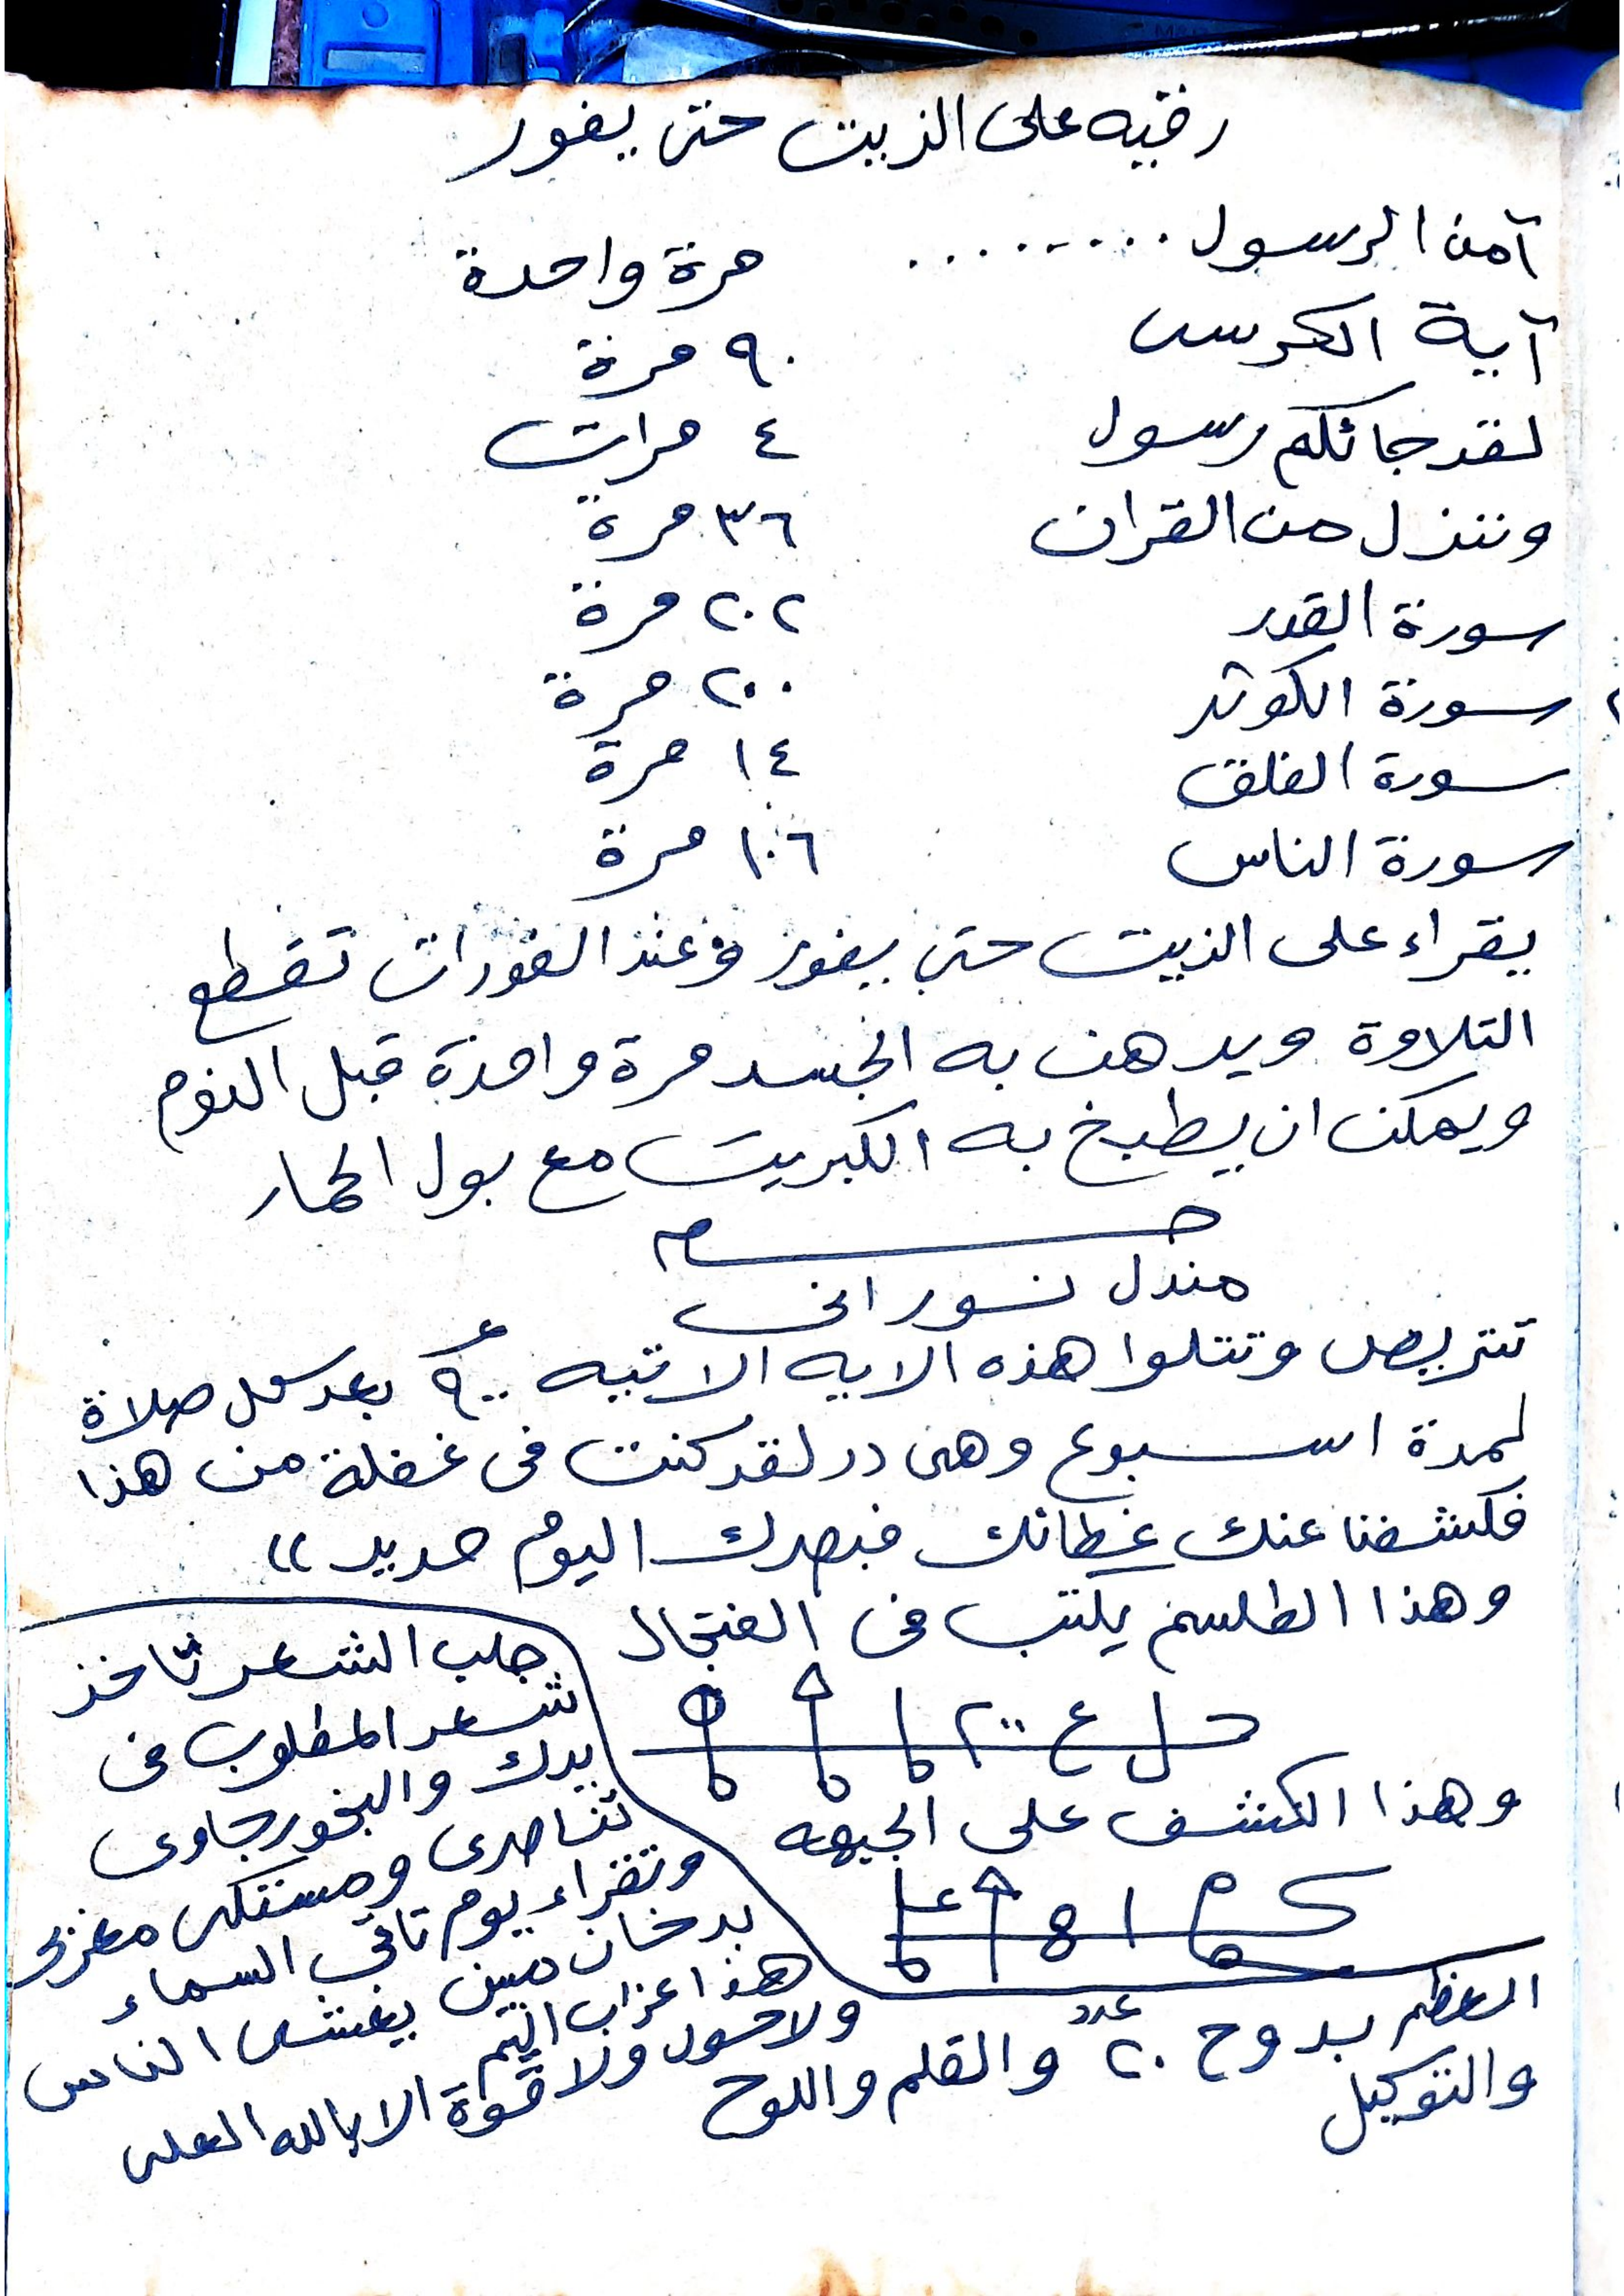 رقيه على الزيت حتى يفور
آمن الرسول ......... مرة واحدة
آية الكرسى ٩٠ مرة
لقد جائكم رسول ٤ مرات
وننزل من القران ٣٦ مرة
سورة القدر ٢٠٢ مرة
سورة الكوثر ٢٠٠ مرة
سورة الفلق ١٤ مرة
سورة الناس ١٠٦ مرة
يقراء على الزيت حتى يفور وعند الفورات تقطع
التلاوة ويدهن به الجسد مرة واحدة قبل النوم
ويمكن ان يطبخ به الكبريت مع بول الحمار
مندل نورانى
تتريض وتتلوا هذه الايه الاتيه ٩٠٠ بعد كل صلاة
لمدة اسبوع وهى لقد كنت فى غفلة من هذا
فكشفنا عنك غطائك فبصرك اليوم حديد
وهذا الطلسم يكتب فى الفنجال
وهذا الكشف على الجبهه
جلب الشعر تاخذ
شعر المطلوب فى
يدك والبخور جاوى
تناصرى ومستكى مغربى
وتقراء يوم تاتى السماء
بدخان مبين يغشى الناس
هذا عذاب اليم
ولا حول ولا قوة الا بالله العلى
العظم بدوح ٢٠ عدد والقلم واللوح
والتوكيل